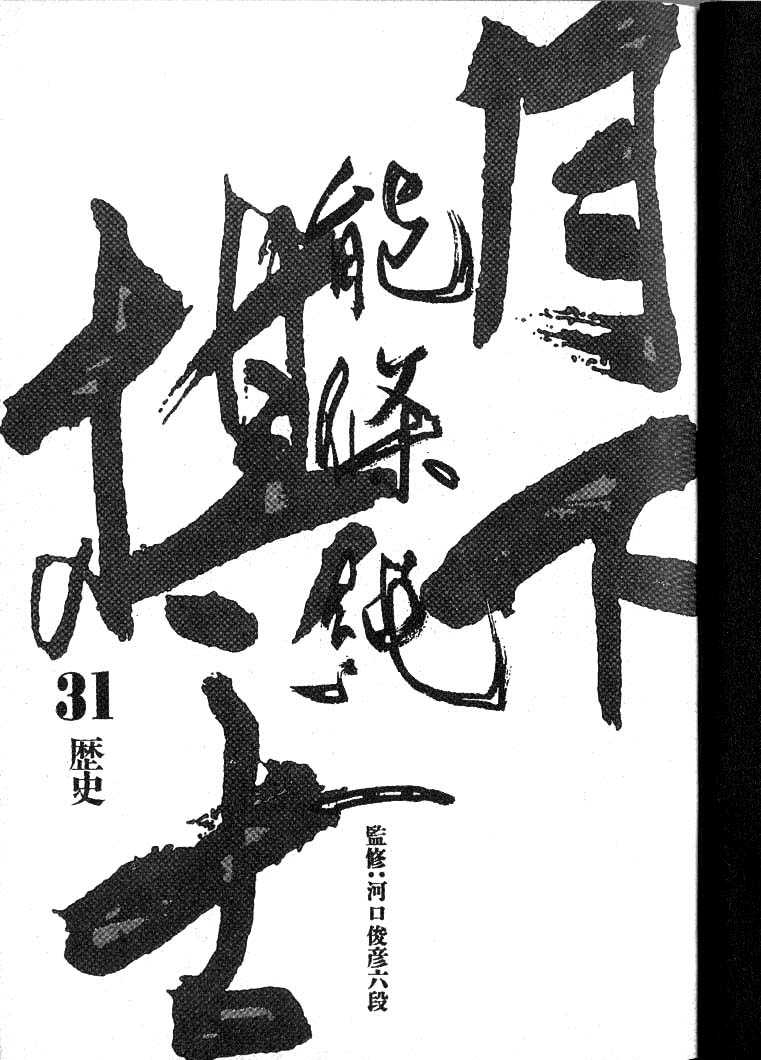 月下
棋士
能條純一
31
歴史
監修：河口俊彦六段